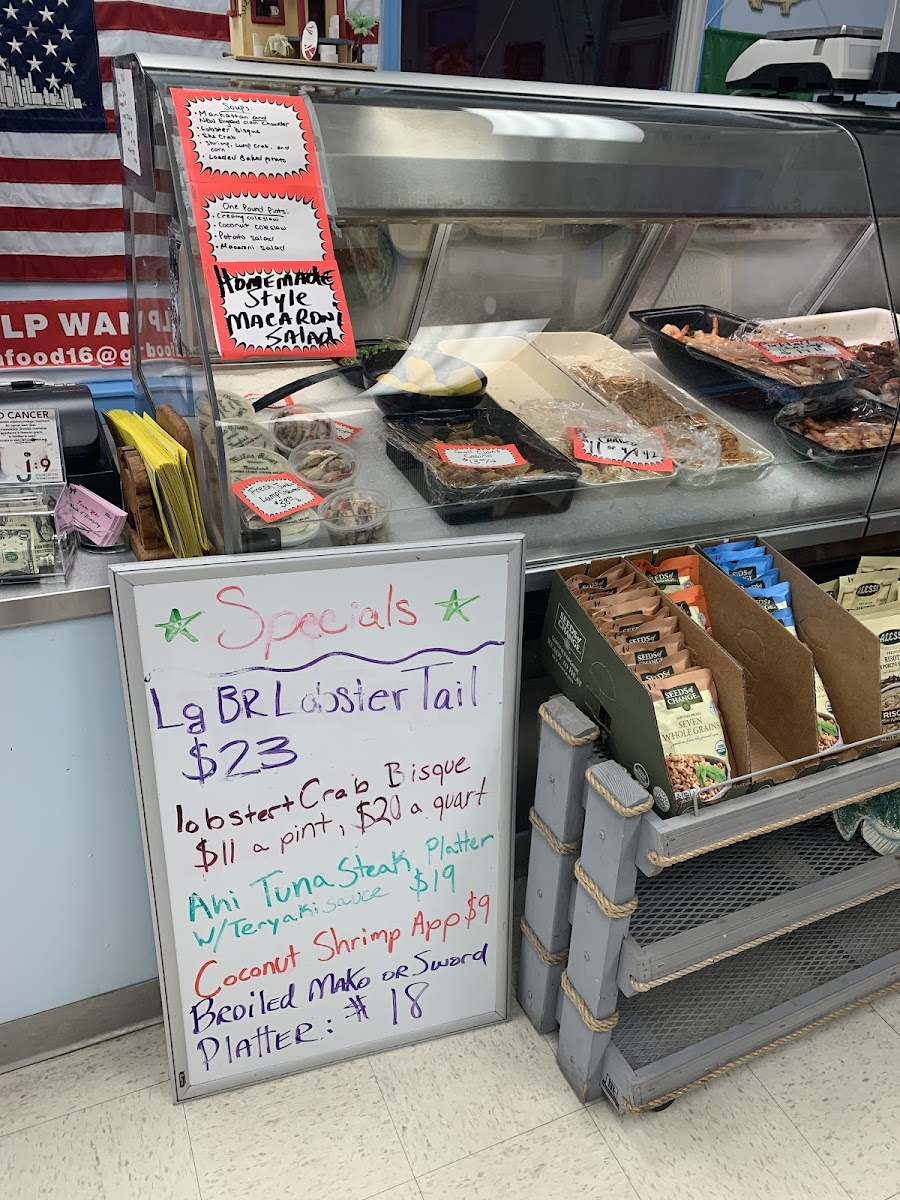 Soups:
• Manhattan and
New England clam chowder
• Lobster Bisque
• She Crab
• Shrimp, Lump Crab, and
corn
• Loaded Baked potato
One Pound Pints:
• Creamy coleslaw
• Coconut coleslaw
• Potato salad
• Macaroni salad
Homemade
Style
Macaroni
Salad
LP WAN
afood16@g
CANCER
1:9
Small Clams
Casino
Specials
Lg BR Lobster Tail
$23
lobster + Crab Bisque
$11 a pint, $20 a quart
Ahi Tuna Steak Platter
w/Teryaki sauce $19
Coconut Shrimp App $9
Broiled Mako or Sword
Platter: $ 18
SEEDS of
CHANGE
SEEDS of
CHANGE
SEVEN
WHOLE GRAINS
ALESSI
ALESSI